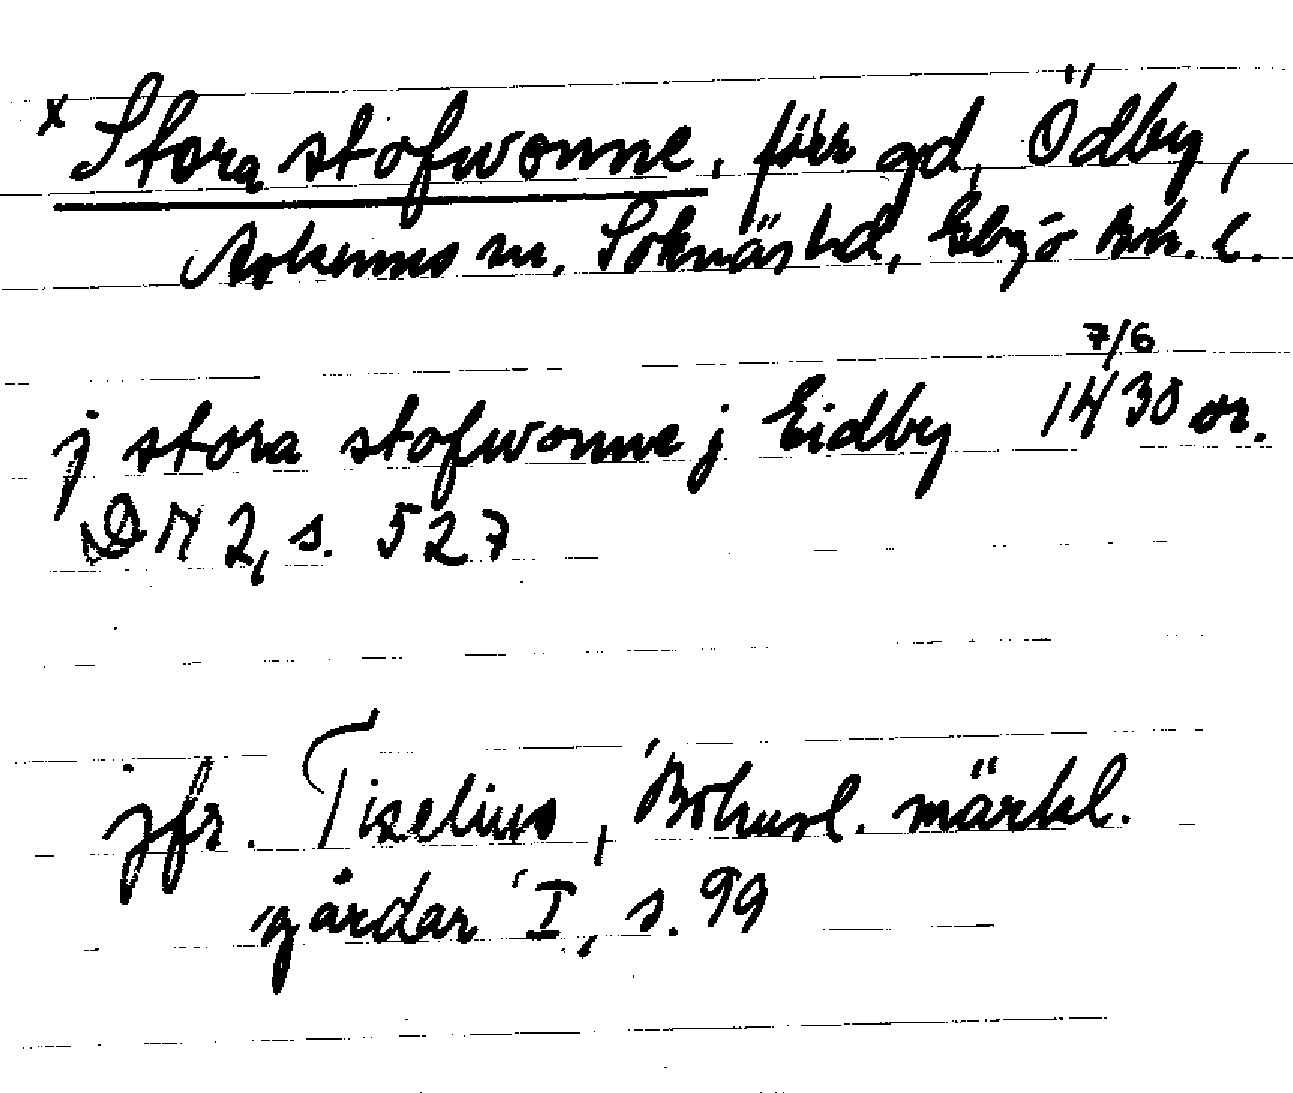 x Stora stofwonne, förr gd, Ödby,
Askums sn. Sotenäs hd, Gbg o Boh. l.
j stora stofwonne j Eidby 7/6 1430 or.
DN 2, s. 527
jfr. Tiselius, 'Bohusl. märkl.
gårdar' I, s. 99